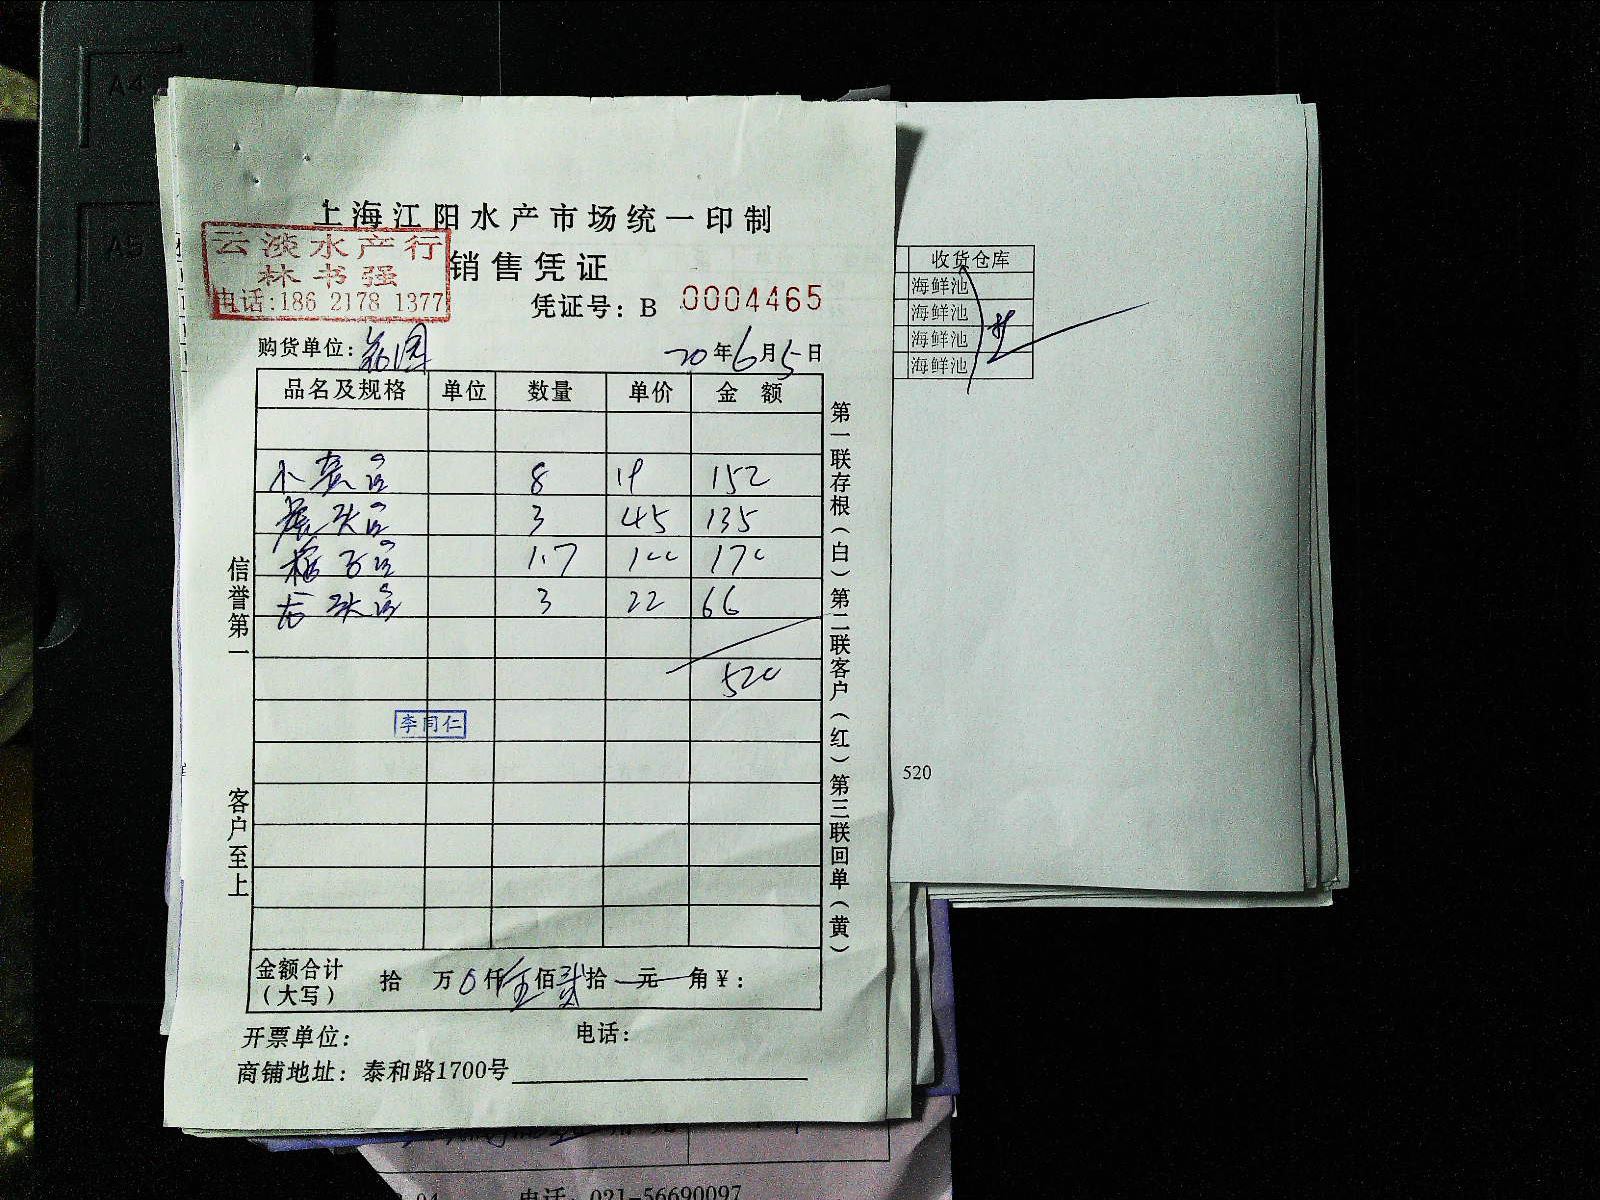 A4
A5
上海江阳水产市场统一印制
云淡水产行
林书强
电话:186 2178 1377
销售凭证
凭证号: B 0004465
购货单位:
20年6月5日
品名及规格 单位 数量 单价 金 额
8 19 152
3 45 135
1.7 100 170
3 22 66
520
李同仁
信誉第一
客户至上
第一联存根(白)第二联客户(红)第三联回单(黄)
金额合计(大写) 拾 万0仟伍佰贰拾 元 角 ¥:
开票单位: 电话:
商铺地址: 泰和路1700号
收货仓库
海鲜池
海鲜池
海鲜池
海鲜池
520
电话: 021-56690097